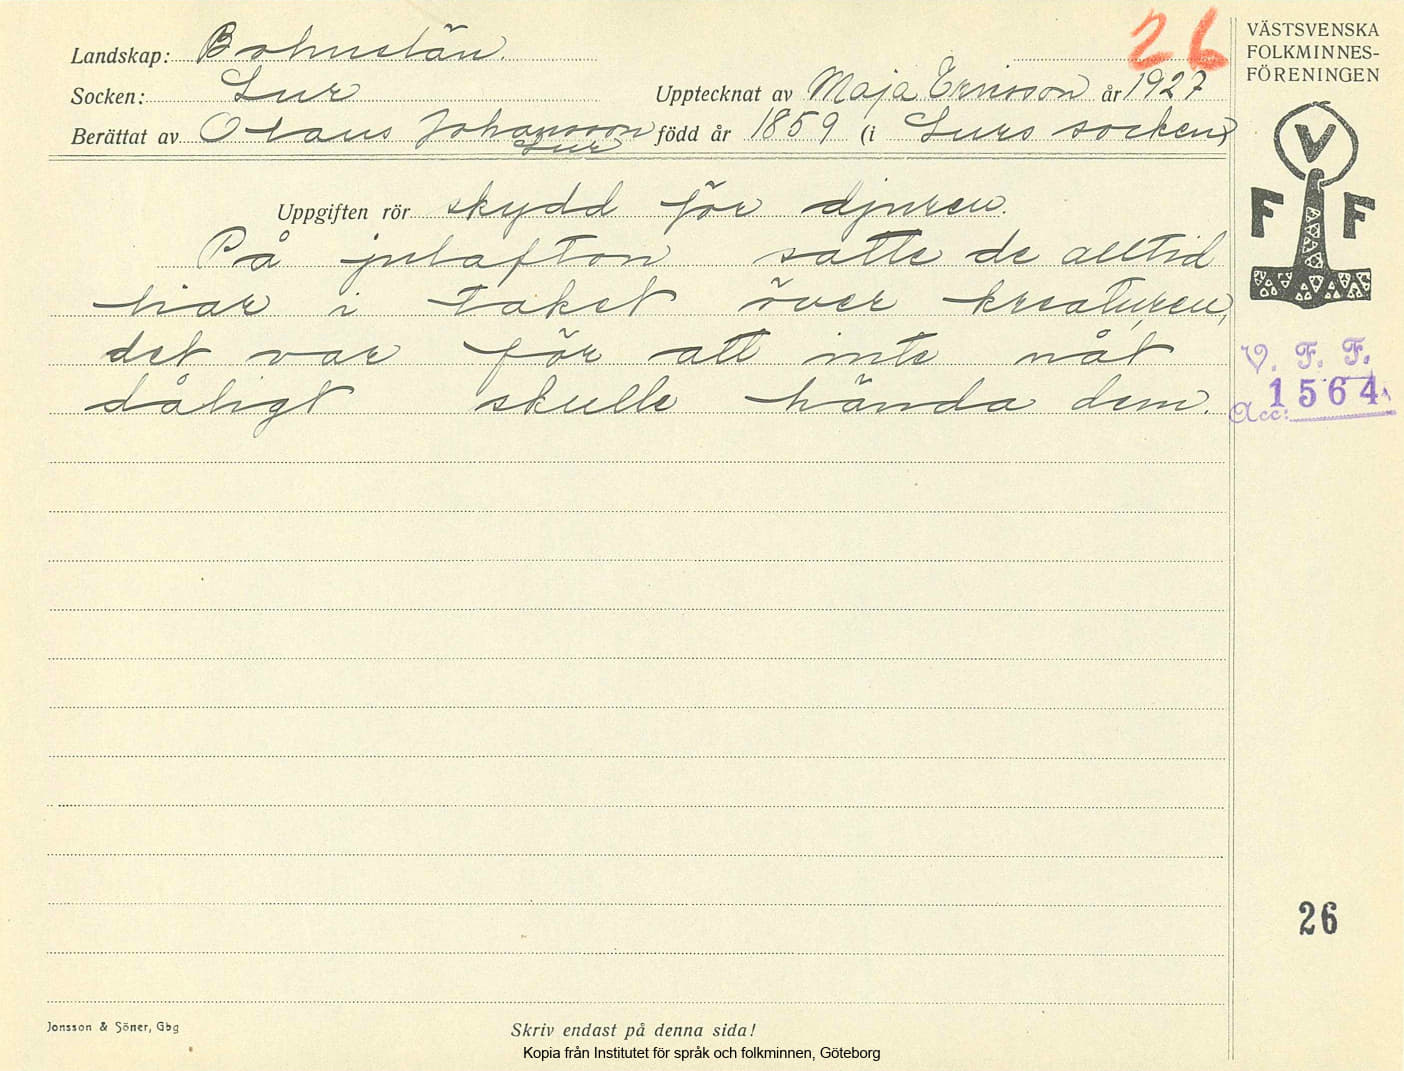 Landskap: Bohuslän.
26
Socken: Lur
Upptecknat av Maja Ericsson år 1927
Berättat av Olaus Johansson född år 1859 (i Lurs socken)
Lur
Uppgiften rör skydd för djuren.
På julafton satte de alltid
liar i taket över kreaturen,
det var för att inte nåt
dåligt skulle hända dem.
VÄSTSVENSKA
FOLKMINNES-
FÖRENINGEN
V
F F
V. F. F.
1564
Acc:
26
Jonsson & Söner, Gbg
Skriv endast på denna sida!
Kopia från Institutet för språk och folkminnen, Göteborg